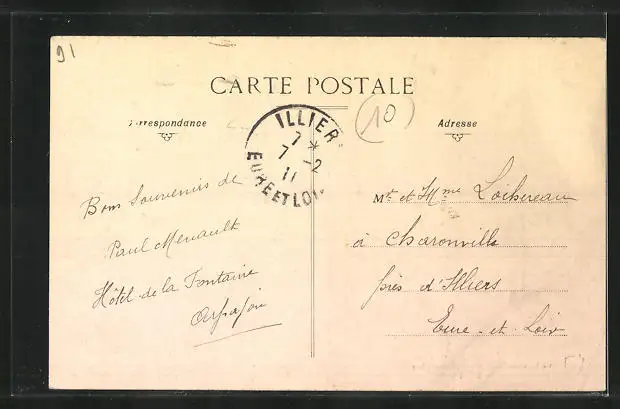 91
CARTE POSTALE
(10)
Correspondance
Adresse
ILLIERS
7 *
7 -2
11
EURE ET LOIR
Bons Souvenirs de
Paul Menault
Hôtel de la Fontaine
Arpajon
Mr et Mme Loisereau
à Charonville
près d'Illiers
Eure-et-Loir